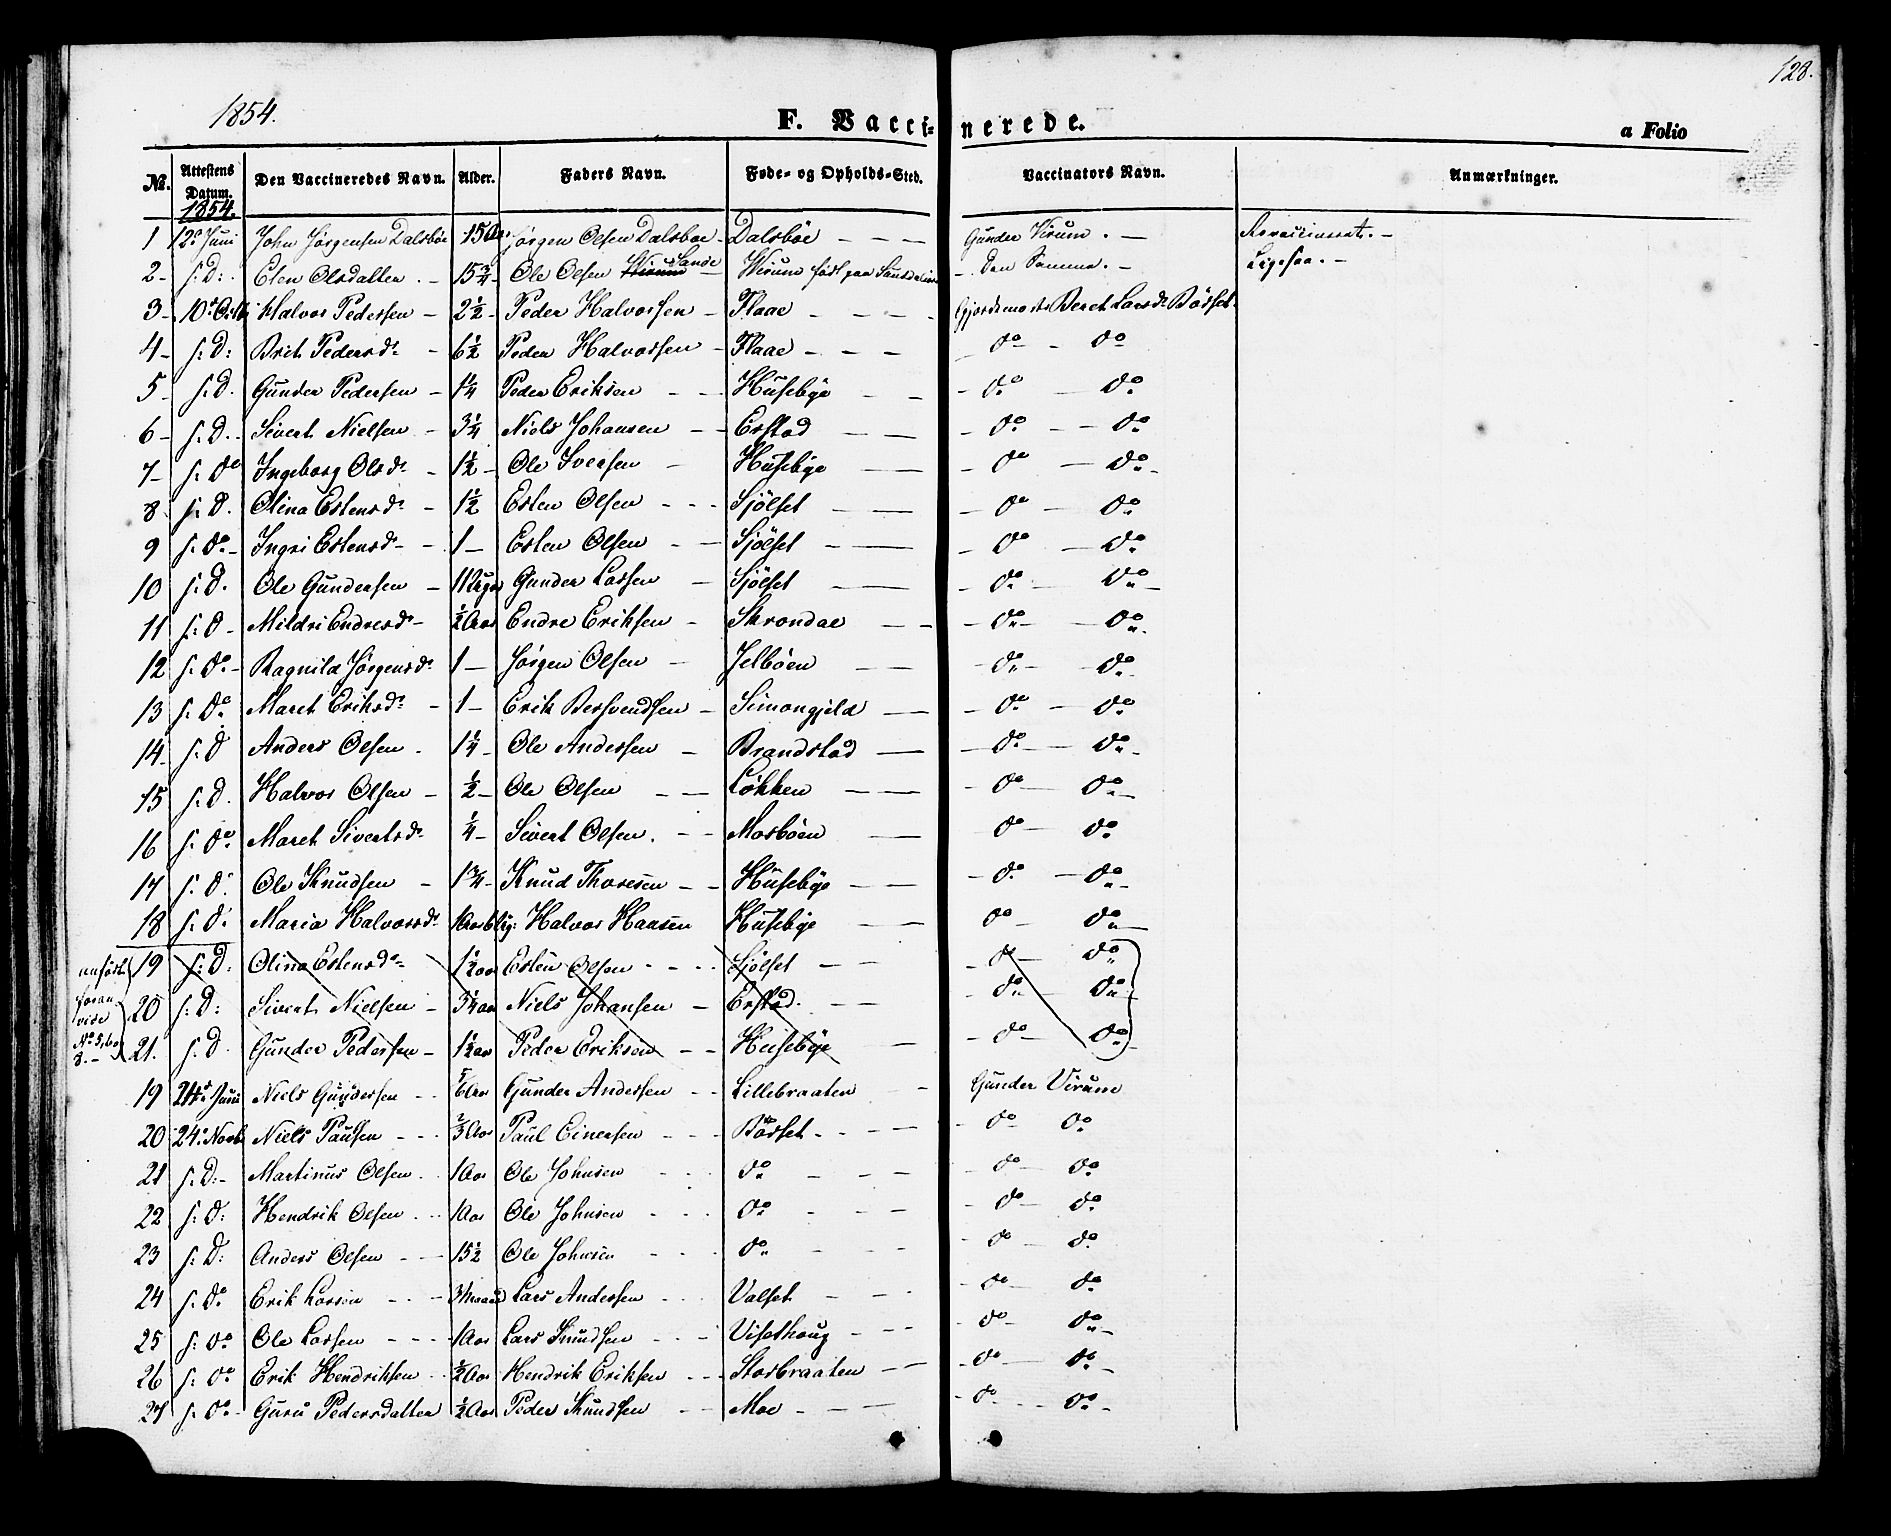 128.
1854.
F. Vaccinerede.
a Folio
No. Attestens Datum. Den Vaccineredes Navn. Alder. Faders Navn. Føde- og Opholds-Sted. Vaccinators Navn. Anmærkninger.
1854.
1 12te Juni John Jørgensen Dalsbøe 15 Aar Jørgen Olsen Dalsboe - Dalsböe - - - Gunder Virum . - Revaccineret. -
2 - s: D: - Elen Olsdatter . - 15 3/4 - Ole Olsen Wirum Sande Wirum født paa - Den Samme. - Ligesaa. -
3 - 10de Octb. Halvor Pedersen - 2 1/2 - Peder Halvorsen - Flaae - - - - Gjordemoder Beret Larsdr Bösset
4 - s: D: Brit Pedersdr - 6 1/2 Peder Halvorsen - Flaae - - - - do - do
5 s: D. Gunder Pedersen - 1 1/4 Peder Eriksen - - Husebye - - - do - do
6 - s: D. - Sivert Nielsen - 3 1/4 Niels Johansen - - Erstad - - - do - - do
7 - s: Do Ingeborg Olsdr - 1 1/2 - Ole Iversen - Husebye - - - do - do -
8 s: D. Olina Estensdr - 1 1/2 Esten Olsen - - - Sjölset - - - do - do
9 s: Do - Ingri Estensdr - - 1 - Esten Olsen - - Sjölset - - - do - do
10 s: D. Ole Gundersen - 11 Uger Gunder Larsen - Sjölset - - - do - do -
11 s: D - Mildri Endresdr - 1/2 Aar Endre Eriksen - Skrondal - - - do - do -
12 s: Do - Ragnild Jørgensdr 1 - Jørgen Olsen - Jelböen - - - do - do -
13 s: Do Maret Eriksdr - 1 - Erik Bersvendsen - Simongjeld - - - do - do
14 - s: D Anders Olsen . 1 1/4 - Ole Andersen - Brandstad - - do - do -
15 s: D. Halvor Olsen - 1/2 - Ole Olsen - - Løkken - - - do - do -
16 s: Do Maret Sivertsdr 1/4 - Sivert Olsen . - - Mosböen - do - do
17 s: D. Ole Knudsen - 1 3/4 - Knud Thoresen - - Husebye - - - do - do -
18 s: D. Maria Halvorsdr 1 Aar 6 Ug: Halvor Haasen Husebye - do - do -
anført foran vide No 5, 6 og 8. -
19 s: D: Olina Estensdr 1 1/2 aar Esten Olsen - - - - Sjölset - - - do - do
20 s: D: Sivert Nielsen - 3 1/4 aar Niels Johansen - Erstad. - - do - do -
21. s: D. Gunder Pedersen - 1 1/2 aar Peder Eriksen - - Husebye - - do - do -
19 24de Juni Niels Gundersen - - 5/6 Aar Gunder Andersen - - Lillebraaten - Gunder Virum
20 24de Novb Niels Paulsen - - - 2/3 Aar Paul Einersen - - - Bösset - - - - - do do
21 s: D: - Martinus Olsen . . 1 Aar Ole Johnsen - - - do - - - do - do
22 s: D: Hendrik Olsen . - - 1 Aar Ole Johnsen - - - do - - - - do - do
23 s: D: Anders Olsen - - - 15 1/2 Ole Johnsen - - - do - - - do - do
24 s: Do Erik Larsen - - - 3 Maan Lars Andersen - - - Valset - - - - do - do
25 s: Do Ole Larsen - - - - 1 Aar Lars Knudsen - - - Visethaug - - - - do - do -
26 s: Do Erik Hendriksen - - 1/2 Aar Hendrik Eriksen - - - Storbraaten - - - do - do -
27 s: Do - Guru Pedersdatter 1/2 Aar Peder Knudsen - - Moe - - - - - do - - - do -